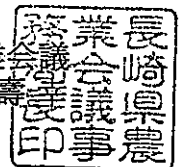 長崎県農
業会議事
務局長印
会議
壽